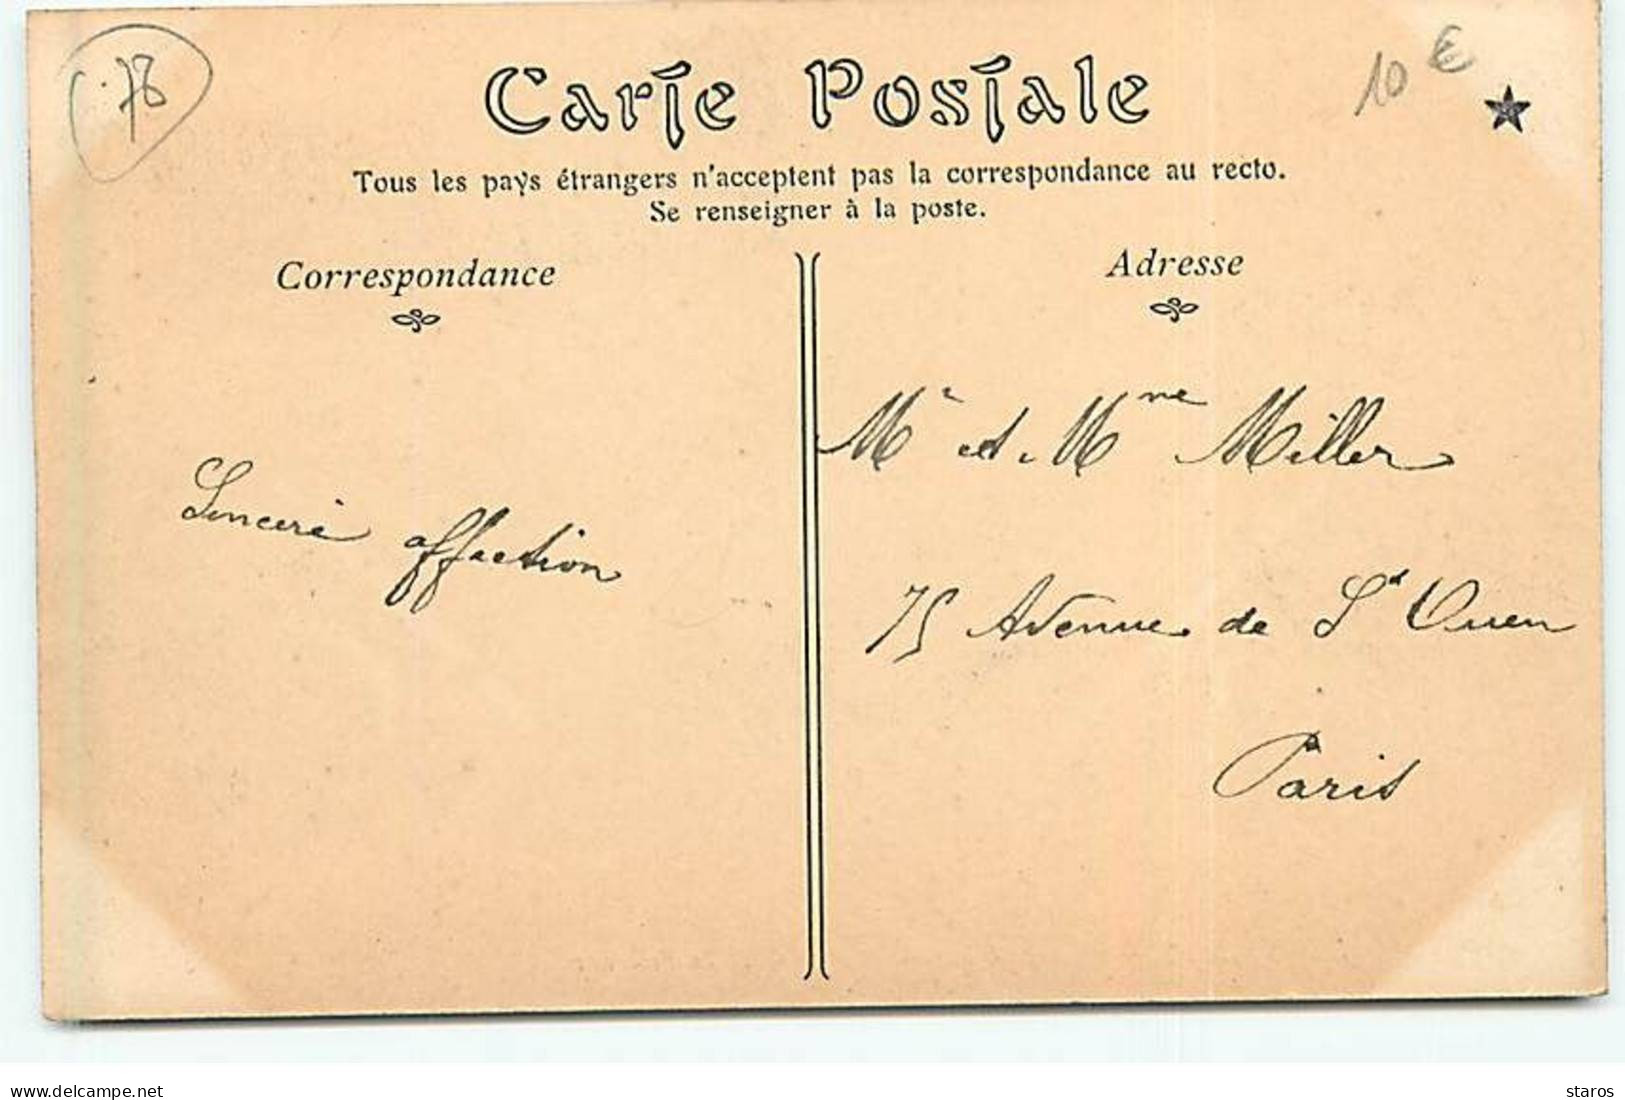 78
10 €
Carte Postale
Tous les pays étrangers n'acceptent pas la correspondance au recto.
Se renseigner à la poste.
Correspondance
Sincère affection
Adresse
Mr et Mme Miller
75 Avenue de St Ouen
Paris
www.delcampe.net
staros